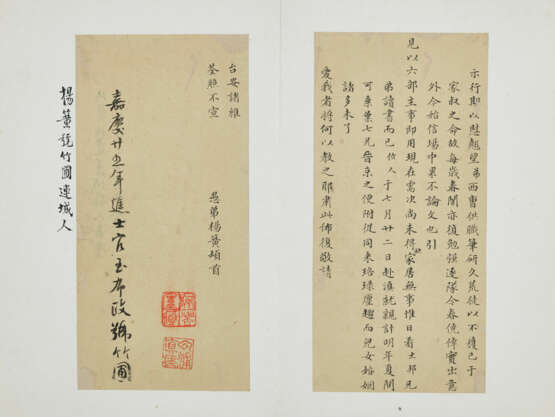 示行期以慰翹望弟西曹供職筆研久荒徒以不獲已于
家叔之命故每歲春闈亦復勉強逐隊今春僥倖實出意
外今始信場中果不論文也引
見以六部主事即用現在需次尚未得家居無事惟日看大邦兄
弟讀書而已內人于七月廿二日赴滇就親計明年夏間
可乘葉七兄晉京之便附從同來珞珠塵趨而兒女婚姻
諸多未了
愛我者將何以教之耶肅此佈復敬請
台安諸維
荃照不宣
愚弟楊簧頓首
嘉慶廿五年進士官至布政號竹圃
楊簧號竹圃連城人